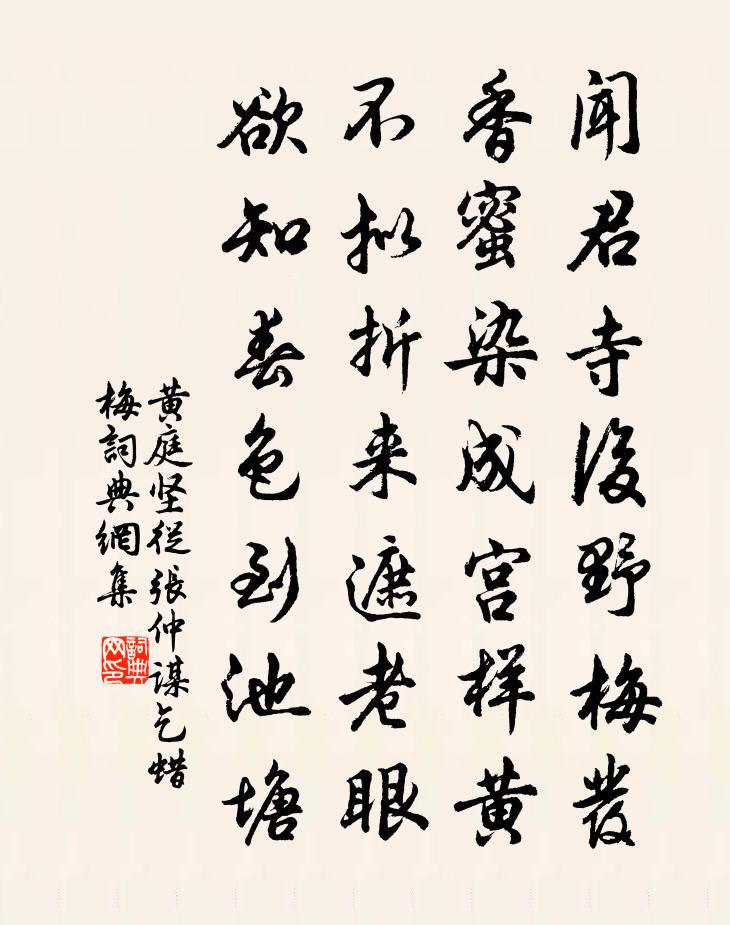 闻君寺後野梅發
香蜜染成宫样黄
不拟折来遮老眼
欲知春色到池塘
黄庭坚從張仲谋乞蜡
梅詞典網集
詞典网印